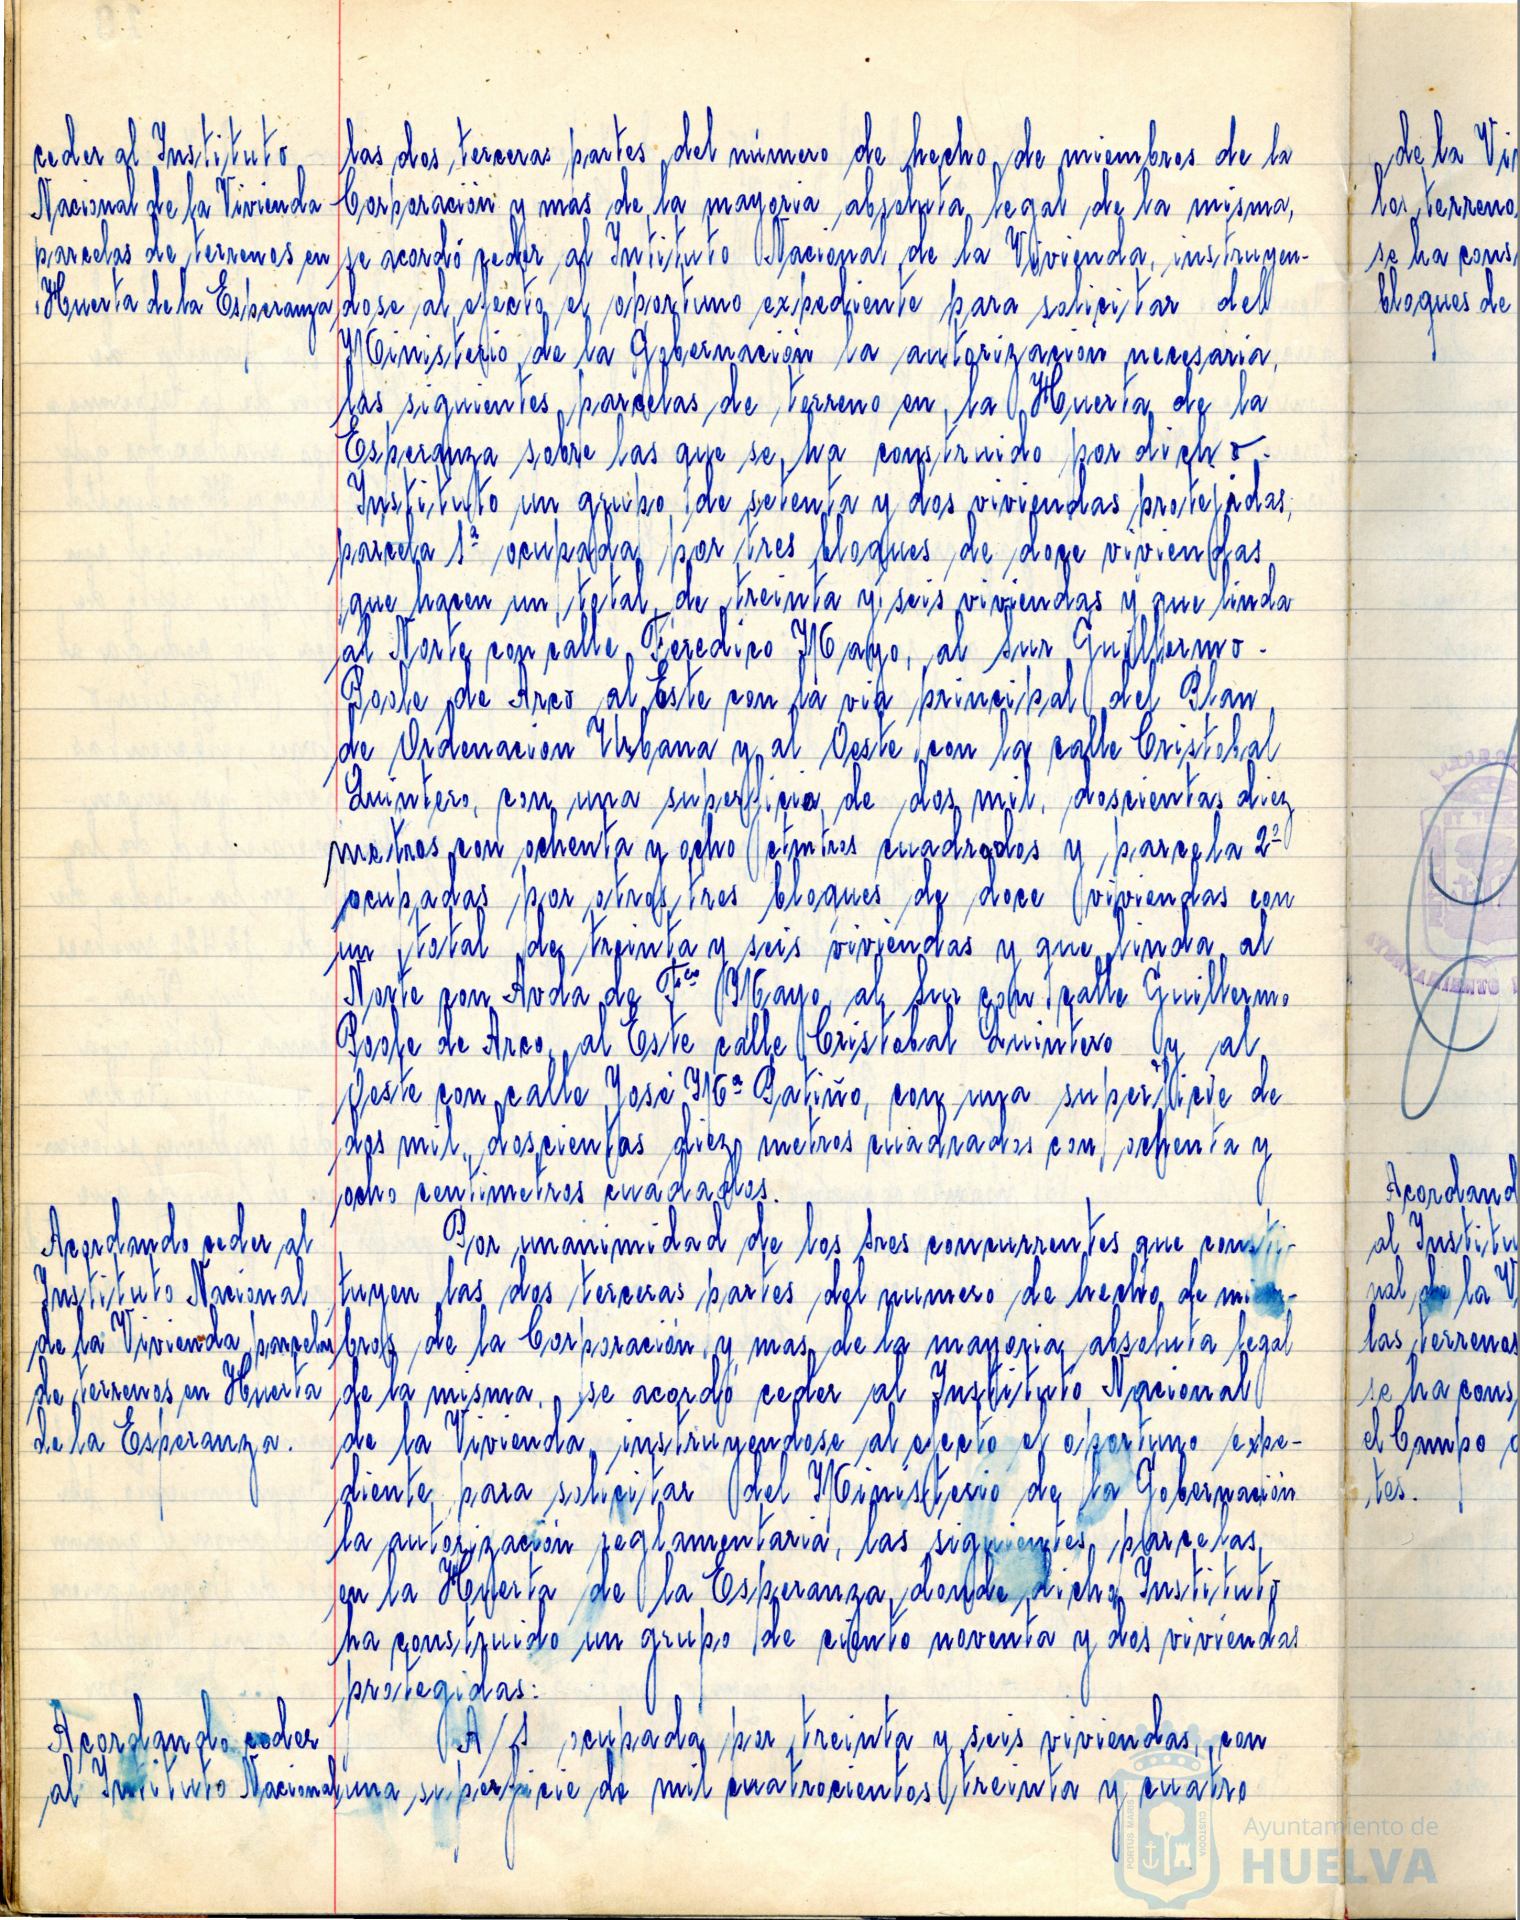 ceder al Instituto
Nacional de la Vivienda
parcelas de terrenos en
Huerta de la Esperanza
las dos terceras partes del número de hecho de miembros de la
Corporación y mas de la mayoria absoluta legal de la misma,
se acordó ceder al Intituto Nacional de la Vivienda, instruyen-
dose al efecto el oportuno expediente para solicitar del
Ministerio de la Gobernación la autorización necesaria,
las siguientes parcelas de terreno en la Huerta de la
Esperanza sobre las que se ha construido por dicho
Instituto un grupo de setenta y dos viviendas protegidas,
parcela 1ª ocupada por tres bloques de doce viviendas
que hacen un total de treinta y seis viviendas y que linda
al Norte con calle Feredico Mayo, al sur Guillermo
Poole de Arco al Este con la via principal del Plan
de Ordenación Urbana y al Oeste con la calle Cristobal
Quintero, con una superficie de dos mil, doscientas diez
metros con ochenta y ocho ctmtros cuadrados y parcela 2ª
ocupadas por otros tres bloques de doce viviendas con
un total de treinta y seis viviendas y que linda al
Norte con Avda de Fco Mayo al Sur con calle Guillermo
Poole de Arco, al Este calle Cristobal Quintero y al
Oeste con calle José Mª Patiño, con una superficie de
dos mil, doscientas diez metros cuadrados con ochenta y
ocho centimetros cuadados.
Acordando ceder al
Instituto Nacional
de la Vivienda parcelas
de terrenos en Huerta
de la Esperanza.
Por unanimidad de los Sres concurrentes que consti-
tuyen las dos terceras partes del numero de hecho de miem-
bros de la Corporación y mas de la mayoria absoluta legal
de la misma, se acordó ceder al Instituto Nacional
de la Vivienda, instruyendose al efecto el oportuno expe-
diente para solicitar del Ministerio de la Gobernación
la autorización reglamentaria, las siguientes parcelas,
en la Huerta de la Esperanza donde dicho Instituto
ha construido un grupo de ciento noventa y dos viviendas
protegidas:
Acordando ceder
al Instituto Nacional
A/1 ocupada por treinta y seis viviendas, con
una superficie de mil cuatrocientos treinta y cuatro
de la
los terreno
se ha cons
bloques de
Acordand
al Institu
nal de la V
las terrenos
se ha cons
el Campo
tes.
Ayuntamiento de
HUELVA